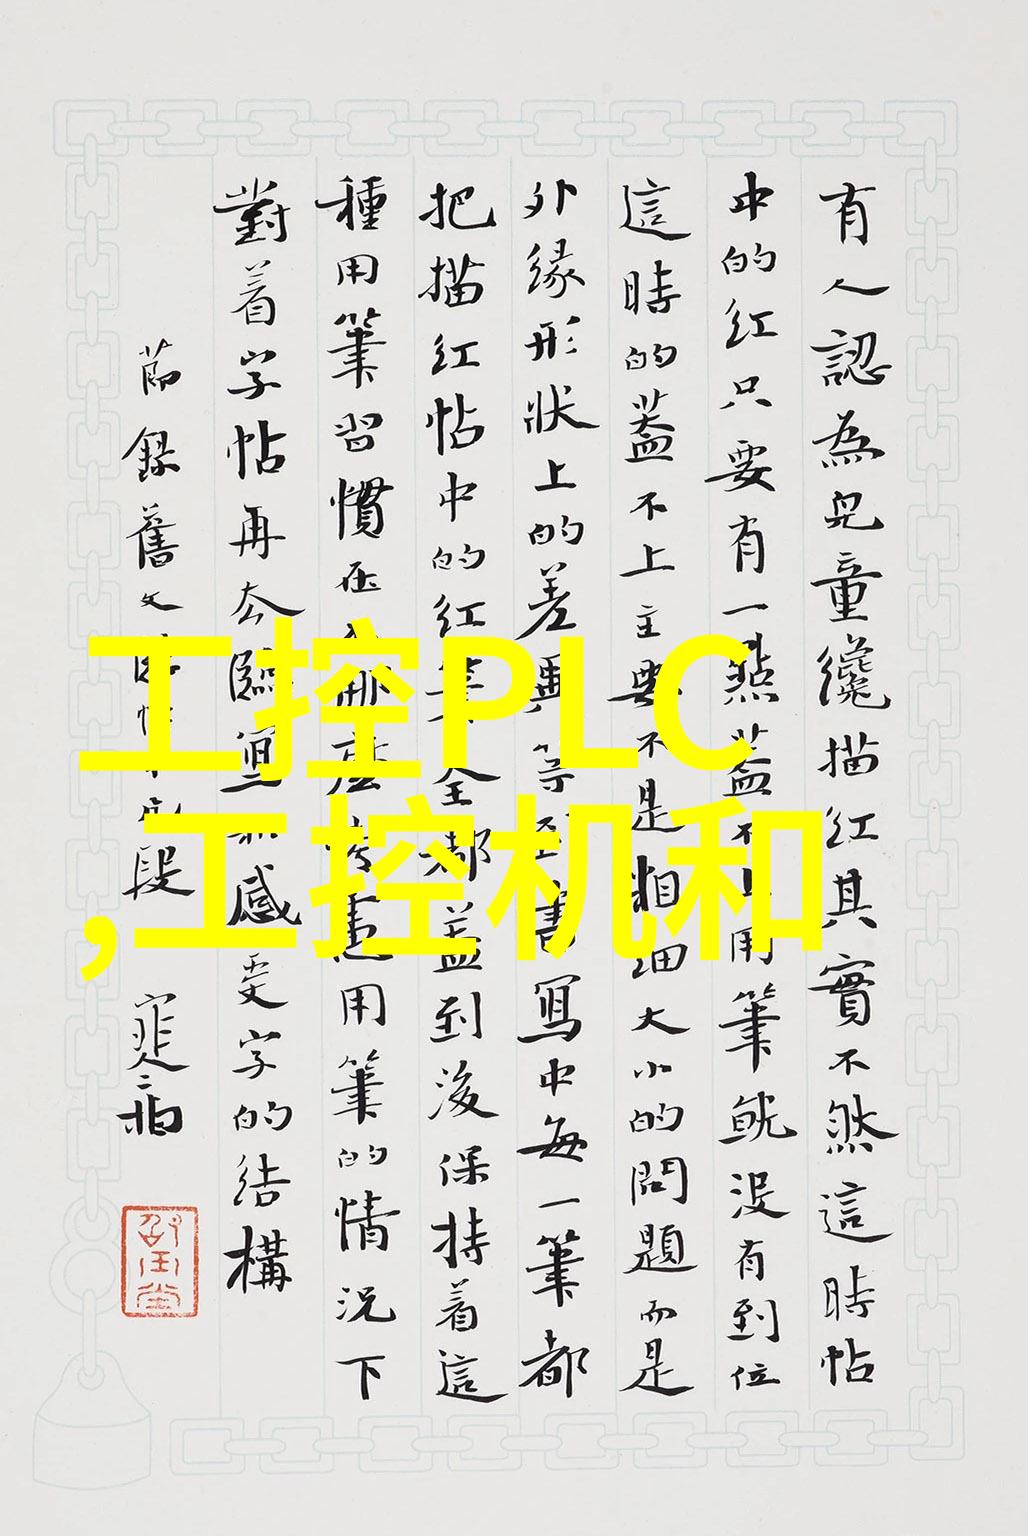 有人認為兒童纔描紅其實不然這時帖
中的紅只要有一點蓋不上用筆就沒有到位
這時的蓋不上主要不是粗細大小的問題而是
外緣形狀上的差異等書寫中每一筆都
把描紅帖中的紅全都蓋到後保持着這
種用筆習慣在不那麼考慮用筆的情況下
對着字帖再去臨寫感受字的結構
節錄舊文段
工控PLC
,工控机和